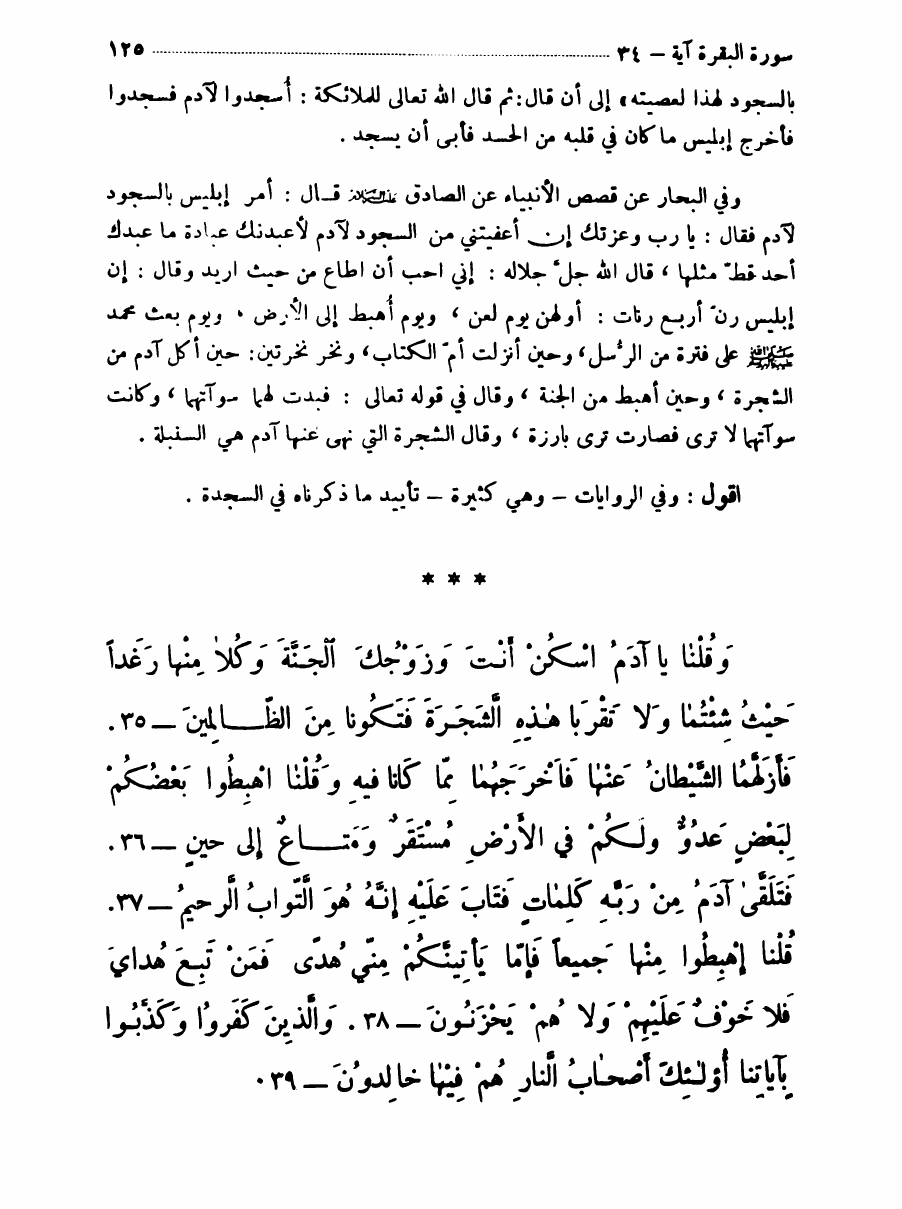 سورة البقرة آية – ٣٤ ........ ١٢٥
بالسجود لهذا لعصيته، إلى أن قال: ثم قال الله تعالى للملائكة : أُسجدوا لآدم فسجدوا
فأخرج إبليس ما كان في قلبه من الحسد فأبى أن يسجد .
وفي البحار عن قصص الأنبياء عن الصادق عليه السلام قـال : أمر إبليس بالسجود
لآدم فقال : يا رب وعزتك إن أعفيتني من السجود لآدم لأعبدنك عبادة ما عبدك
أحد قطّ مثلها ، قال الله جلّ جلاله : إني احب أن اطاع من حيث اريد وقال : إن
إبليس رنّ أربع رنات : أولهن يوم لعن ، ويوم أُهبط إلى الأرض ، ويوم بعث محمد
ﷺ على فترة من الرُسل، وحين أنزلت أمّ الكتاب، ونخر نخرتين: حين أكل آدم من
الشجرة ، وحين أهبط من الجنة ، وقال في قوله تعالى : فبدت لهما سوآتهما ، وكانت
سوآتهما لا ترى فصارت ترى بارزة ، وقال الشجرة التي نهى عنها آدم هي السنبلة .
اقول : وفي الروايات – وهي كثيرة – تأييد ما ذكرناه في السجدة .
* * *
وَقُلْنا يا آدَمُ اسْكُنْ أَنْتَ وَزَوْجُكَ الْجَنَّةَ وَكُلا مِنْها رَغَداً
حَيْثُ شِئْتُما وَلا تَقْرَبا هٰذِهِ الشَّجَرَةَ فَتَكُونا مِنَ الظّـالِمينَ – ٣٥.
فَأَزَلَّهُمَا الشَّيْطانُ عَنْها فَأَخْرَجَهُما مِمّا كانا فيهِ وَقُلْنَا اهْبِطُوا بَعْضُكُمْ
لِبَعْضٍ عَدُوٌّ وَلَكُمْ في الأَرْضِ مُسْتَقَرٌّ وَمَتـاعٌ إلى حينٍ – ٣٦.
فَتَلَقّىٰ آدَمُ مِنْ رَبِّهِ كَلِماتٍ فَتابَ عَلَيْهِ إِنَّهُ هُوَ التَّوابُ الرَّحيمُ – ٣٧.
قُلْنا إهْبِطُوا مِنْها جَميعاً فَإمّا يَأتِيَنَّكُمْ مِنّي هُدًى فَمَنْ تَبِعَ هُدايَ
فَلا خَوْفٌ عَلَيْهِمْ وَلا هُمْ يَحْزَنُونَ – ٣٨. وَالَّذينَ كَفَروُا وَكَذَّبُوا
بِآياتِنا أُولٰئِكَ أَصْحٰابُ النّارِ هُمْ فِيْها خالِدوُنَ – ٣٩.